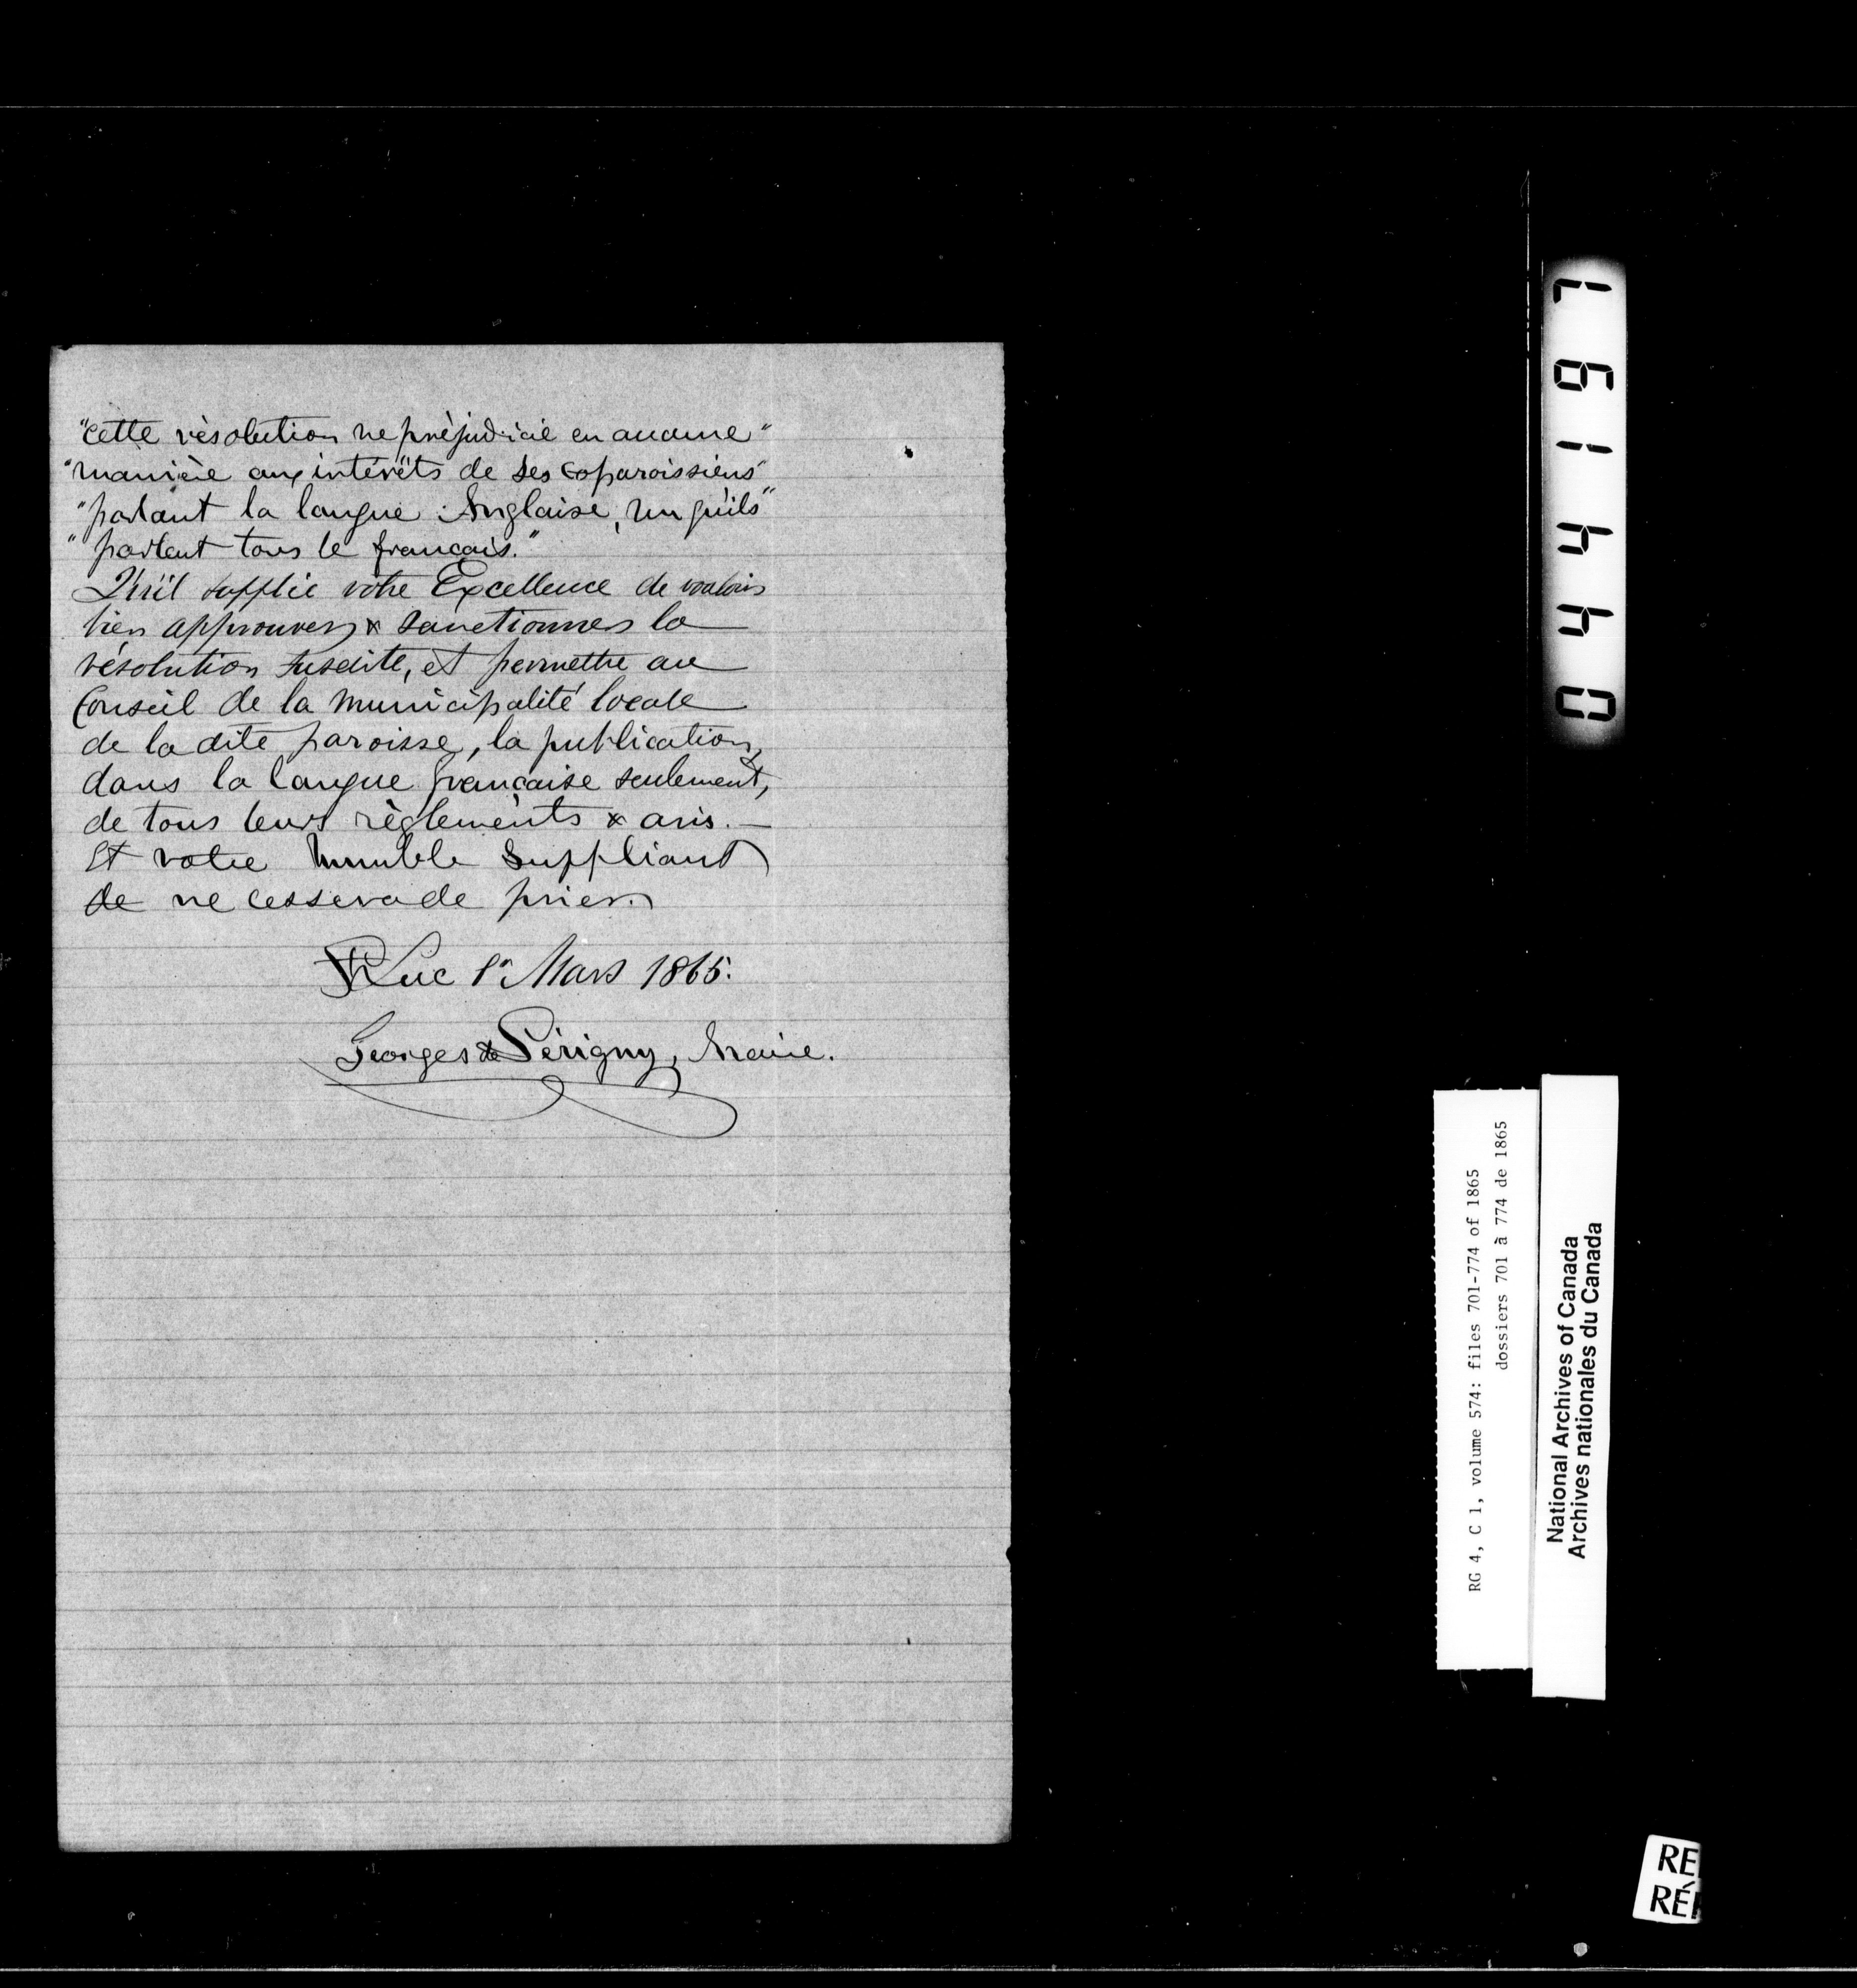 "cette résolution ne préjudicie en aucune"
"manière aux intérêts de ses coparoissiens"
"parlant la langue Anglaise, vu qu'ils"
"parlent tous le français."
Qu'il supplie votre Excellence de vouloir
bien approuver & sanctionner la
résolution susdite, et permettre au
Conseil de la municipalité locale
de la dite paroisse, la publication,
dans la langue française seulement,
de tous leurs règlements & avis. —
Et votre humble suppliant
de ne cessera de prier.
St Luc 1er Mars 1865.
Georges de Périgny, Maire.
044161
RG 4, C 1, volume 574: files 701-774 of 1865
dossiers 701 à 774 de 1865
National Archives of Canada
Archives nationales du Canada
RE
RÉ